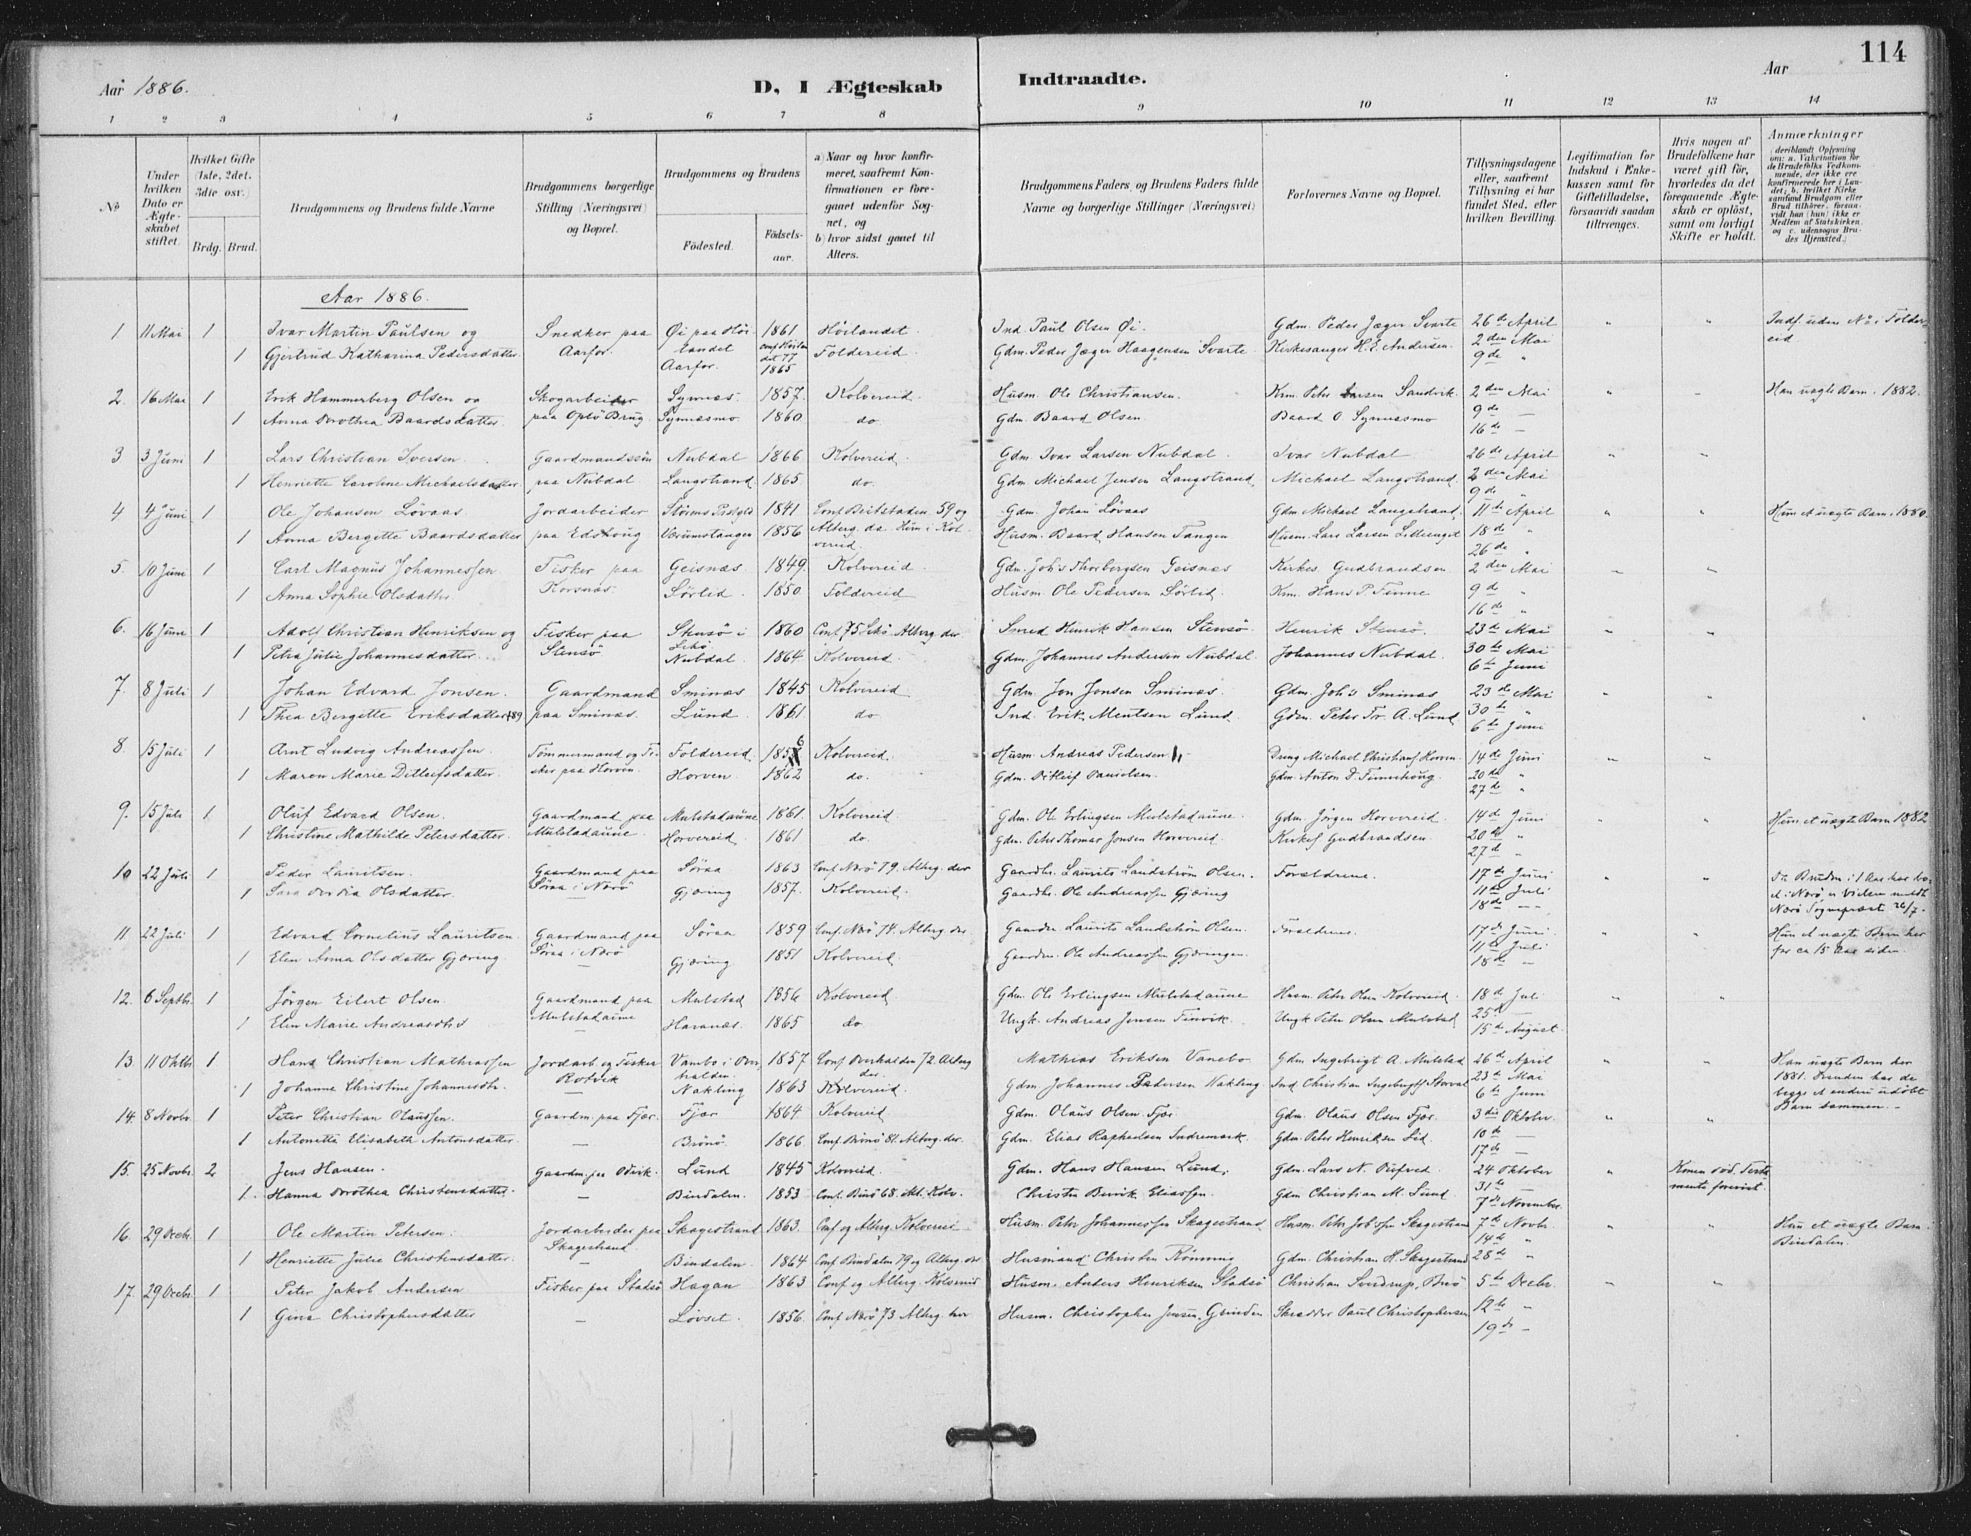 114
Aar 1886.
D, I Ægteskab Indtraadte.
Aar
1 2 3 4 5 6 7 8 9 10 11 12 13 14
No
Under hvilken Dato er Ægteskabet stiftet.
Hvilket Gifte (1ste, 2det, 3die osv.)
Brdg. Brud.
Brudgommens og Brudens fulde Navne
Brudgommens borgerlige Stilling (Næringsvei) og Bopæl.
Brudgommens og Brudens
Fødested.
Fødselsaar.
a) Naar og hvor konfirmeret, saafremt Konfirmationen er foregaaet udenfor Sognet, og
b) hvor sidst gaaet til Alters.
Brudgommens Faders, og Brudens Faders fulde Navne og borgerlige Stillinger (Næringsvei)
Forlovernes Navne og Bopæl.
Tillysningsdagene eller, saafremt Tillysning ei har fundet Sted, efter hvilken Bevilling.
Legitimation for Indskud i Enkekassen samt for Giftetilladelse, forsaavidt saadan tiltrænges.
Hvis nogen af Brudefolkene har været gift før, hvorledes da det foregaaende Ægteskab er opløst, samt om lovligt Skifte er holdt.
Anmærkninger (deriblandt Oplysning om: a. Vakcination for de Brudefolks Vedkommende, der ikke ere konfirmerede her i Landet; b. hvilket Kirkesamfund Brudgom eller Brud tilhører, forsaavidt han (hun) ikke er Medlem af Statskirken, og c. udensogns Brudes Hjemsted.)
Aar 1886.
1 11 Mai 1 Ivar Martin Paulsen og Snedker paa Øi paa Hör- 1861 Höilandet Ind. Paul Olsen Øi. Gdm. Peder Jæger Svarte 26de April " " Indf. uden No i Folder-
1 Gjertrud Katharina Pedersdatter Aarfor. landet conf. Höilandet 77 Foldereid. Gdm. Peder Jæger Haagensen Svarte Kirkesanger H. E. Andersen. 2den Mai eid
Aarfor. 1865 9de "
2. 16 Mai 1 Erik Hammerberg Olsen og Skogarbeider Symnes 1857. Kolvereid. Husm. Ole Christiansen. Krm. Peter Larsen Sandvik. 2den Mai " - Han uægte Barn. 1882.
1 Anna Dorothea Baardsdatter paa Oplö Brug Symnesmo 1860 do Gdm. Baard Olsen. Baard O Symnesmo 9de —
16de —
3 3 Juni 1 Lars Christian Iversen. Gaardmandssön Nubdal 1866 Kolvereid. Gdm. Ivar Larsen Nubdal. Ivar Nubdal 26de April " "
1 Henriette Caroline Michaelsdatter. paa Nubdal Langstrand 1865. do. Gdm Michael Jensen Langstrand. Michael Langstrand. 2den Mai
9de "
4 4 Juni 1 Ole Johansen Lövaas Jordarbeider 1841 Conf. Beitstaden 59 og Gdm. Johan Lövaas Gdm Michael Langstrand. 11te April " " Hun et uægte Barn. 1880.
1 Anna Bergette Baardsdatter paa Edshoug Verumstangen 1856 Altberg. da. Hun i Kolvereid Husm. Baard Hansen Tangen Husm. Lars Larsen 18de "
26de "
5. 10 Juni 1 Carl Magnus Johannessen Fisker paa Geisnæs. 1849. Kolvereid. Gdm. Joh's Thorbergsen Geisnæs Kirkes. Gudbrandsen 2den Mai " "
1 Anna Sophie Olsdatter Korsnæs. Sörlid. 1850. Foldereid Husm. Ole Pedersen Sörlid. Krm. Hans P. Finne 9de "
16de "
6. 16 Juni 1 Adolf Christian Henriksen og Fisker paa Stensö i 1860 Conf. 75 Lekö Altberg. der Smed Henrik Hansen Stensö. Henrik Stensö. 23de Mai " "
1 Petra Julie Johannesdatter. Stensö Lekö Nubdal. 1864 Kolvereid. Gdm. Johannes Andersen Nubdal. Johannes Nubdal. 30te Mai
6te Juni
7. 8 Juli 1 Johan Edvard Jonsen. Gaardmand Sminæs 1845 Kolvereid Gdm. Jon Jonsen Sminæs. Gdm. Joh's Sminæs 23de Mai " "
1 Thea Bergette Eriksdatter paa Sminæs. Lund. 1861 do Ind. Erik Mentsen Lund. Gdm. Peter Fr. A. Lund 30te "
6te Juni
8. 15 Juli 1 Arnt Ludvig Andreassen. Tömmermand og Fi- Foldereid 1856 Kolvereid. Husm. Andreas Pedersen Dreng Michael Horven. 14de Juni " "
1 Maren Marie Ditlefsdatter. sker paa Horven. Horven. 1862 do. Gdm. Ditlef Danielsen. Gdm. Anton D. Finnehoug. 20de "
27de "
9. 15 Juli 1 Oluf Edvard Olsen. Gaardmand paa Mulstadaune 1861. Kolvereid. Gdm. Ole Erlingsen Mulstadaune. Gdm. Jörgen Horvereid. 14de Juni " " Hun et uægte Barn 1882
1 Christine Mathilde Petersdatter. Mulstadaune. Horvereid 1861 do. Gdm. Peter Thomas Jonsen Horvereid. Kirkes Gudbrandsen 20de "
27de "
10 22 Juli 1 Peder Lauritsen. Gaardmand paa Söraa 1863 Conf. Nærö 79. Altbrg. der Gaardbr. Laurits Landström Olsen. Forældrene. 17de Juni " "
1 Sara Olsdatter. Söraa i Nærö Gjæring 1857. Kolvereid. Gaardbr. Ole Andreassen Gjæring 11te Juli
18de — Nærö Sognepræst 26/7.
11. 22 Juli 1 Edvard Cornelius Lauritsen. Gaardmand paa Söraa 1859 Conf. Nærö 74. Altbrg. der Gaardbr. Laurits Landström Olsen. Forældrene. 17de Juni " " Hun et uægte Barn her
1 Elen Anna Olsdatter Gjæring. Söraa i Nærö Gjæring 1851 Kolvereid. Gaardbr. Ole Andreassen Gjæringen. 11te Juli for ca 15 Aar siden
18de —
12. 6 Septbr. 1 Jörgen Eilert Olsen. Gaardmand paa Mulstad 1856 Kolvereid. Gdm. Ole Erlingsen Mulstadaune Husm. Peter Olsen Kolvereid. 18de Juli " "
1 Elen Marie Andreasdtr. Mulstadaune Havnæs. 1865 do. Ungk. Andreas Jensen Finvik. Ungk Peter Olsen Mulstad 25de —
15de August
13. 11 Oktbr. 1 Hans Christian Mathiassen Jordarb. og Fisker Vanebo i Over- 1857 Conf. Overhalden 72. Altbrg Mathias Eriksen Vanebo Gdm Ingebrigt A. Mulstad 26de April " " Han uægte Barn her
1 Johanne Christine Johannesdtr. Rotvik halden. Nakling 1863 der. Kolvereid. Gdm Johannes Pedersen Nakling Ind. Christian 23de Mai 1881.
6te Juni Barn sammen.
14. 8 Novbr. 1 Peter Christian Olaussen. Gaardm. paa Fjær. Fjær 1864 Kolvereid Gdm. Olaus Olsen Fjær Gdm. Olaus Olsen Fjær. 3die Oktober. " "
1 Antonette Elisabeth Antonsdatter. — Brönö. 1866 Conf. Brönö 81. Altbrg. der. Gdm. Elias Raphaelsen Indremark. Gdm. Peter Henriksen Lid. 10de —
17de —
15. 25 Novbr. 2 Jens Hansen. Gaardm. paa Lund 1845 Kolvereid. Gdm. Hans Hansen Lund. Gdm. Lars N. 24 Oktober " Konen död. Testamente forevist.
1. Hanna Dorothea Christensdatter. — Bindalen. 1853 Conf. Bind 68. Alt. Kolv. Christen Eliassen. Gdm Christian M. Lund 31te —
7de November
16. 29 Decbr. 1 Ole Martin Petersen. Jordarbeider paa Skagestrand 1863. Conf. og Altbrg. Kolvereid Husm. Peter Johannessen Skagestrand Husm. Peter Johs'sen Skagestrand 7de Novbr. " " Hun et uægte Barn i
1 Henriette Julie Christensdatter. Skagestrand — Bindalen 1864 Conf. Bindalen 79 og Altbrg. der Husmand Christen Rönning Gdm. Christian H. Skagestrand 14de " Bindalen.
28de "
17. 29 Decbr. 1 Peter Jakob Andersen Fisker paa Stadsö Hagan 1863 Conf og Altbrg. Kolvereid Husm. Anders Henriksen Stadsö Christian Sverdrup, 5te Decbr. " "
1 Gina Christophersdatter — Lövset. 1856. Conf. Nærö 73 Altbrg. her Husm. Christopher Jensen, Grinden Skrædder Paul Christophersen 12te "
19de —